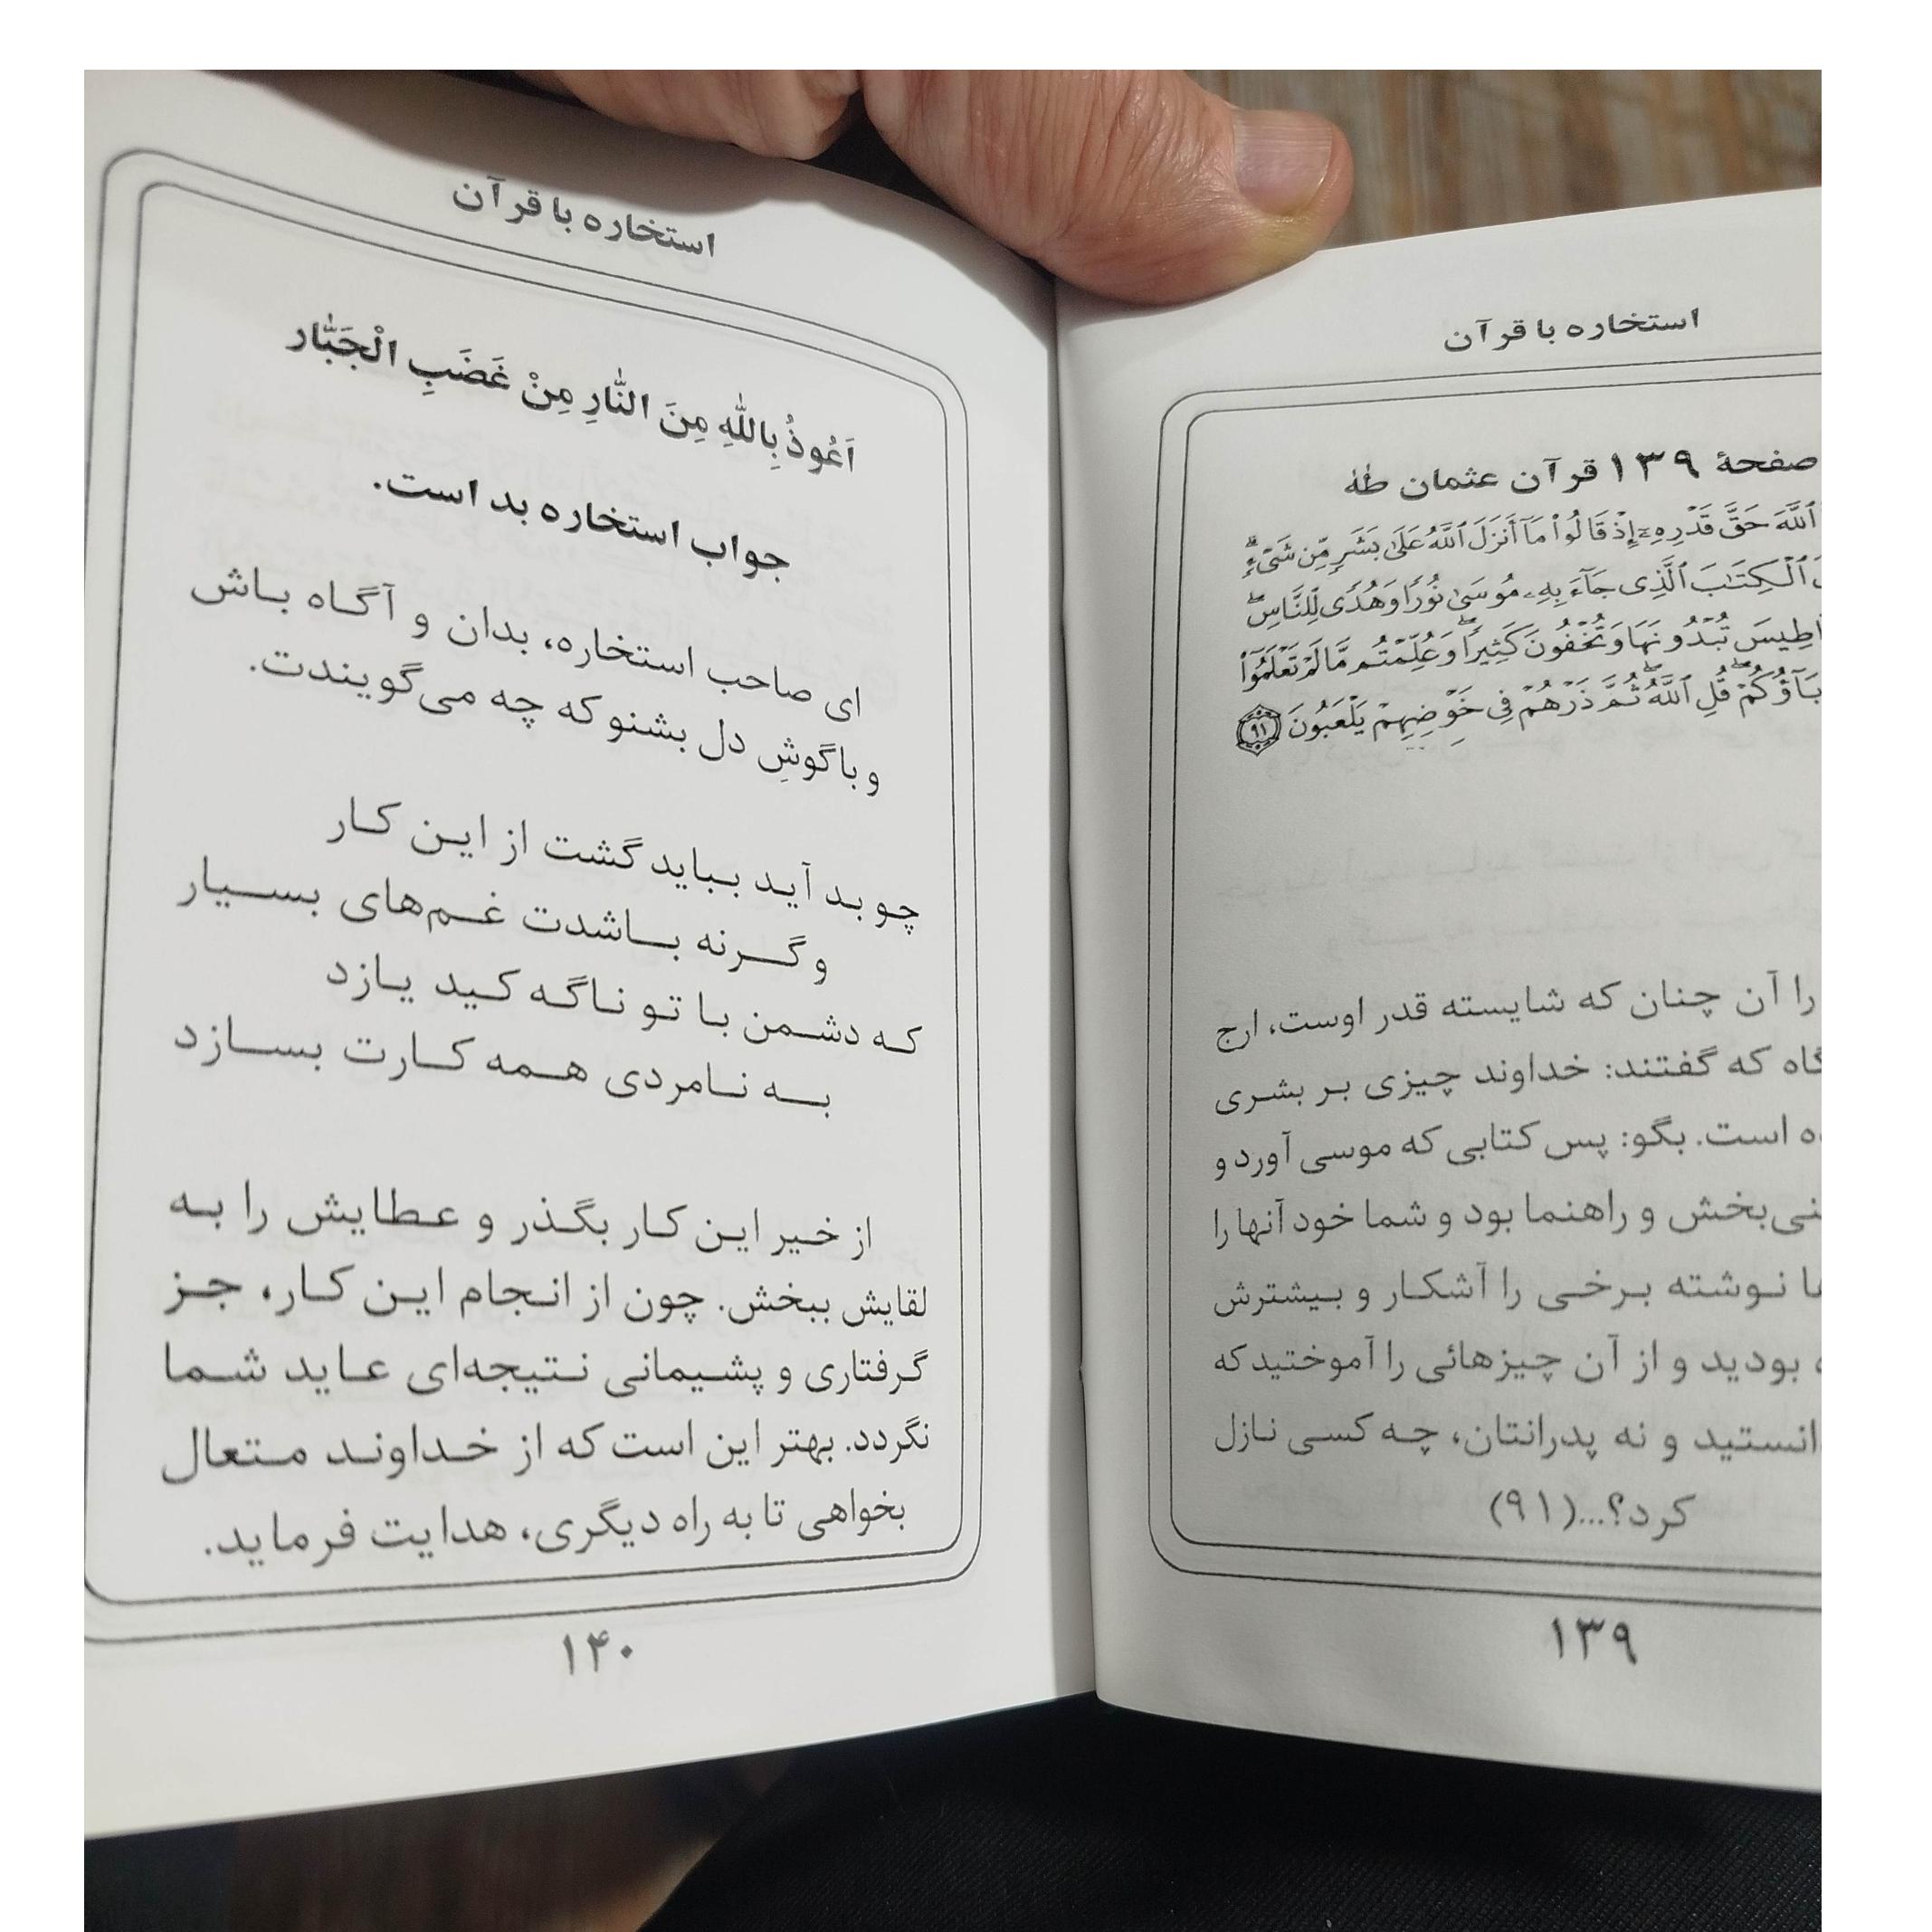 استخاره با قرآن
صفحهٔ ۱۳۹ قرآن عثمان طه
ٱللَّهَ حَقَّ قَدْرِهِۦٓ إِذْ قَالُوا۟ مَآ أَنزَلَ ٱللَّهُ عَلَىٰ بَشَرٍ مِّن شَىْءٍ ۗ
ٱلْكِتَٰبَ ٱلَّذِى جَآءَ بِهِۦ مُوسَىٰ نُورًا وَهُدًى لِّلنَّاسِ ۖ
تُبْدُونَهَا وَتُخْفُونَ كَثِيرًا ۖ وَعُلِّمْتُم مَّا لَمْ تَعْلَمُوٓا۟
قُلِ ٱللَّهُ ۖ ثُمَّ ذَرْهُمْ فِى خَوْضِهِمْ يَلْعَبُونَ ۹۱
را آن چنان که شایسته قدر اوست، ارج
که گفتند: خداوند چیزی بر بشری
است. بگو: پس کتابی که موسی آورد و
و راهنما بود و شما خود آنها را
نوشته برخی را آشکار و بیشترش
بودید و از آن چیزهائی را آموختید که
و نه پدرانتان، چه کسی نازل
کرد؟...(۹۱)
۱۳۹
استخاره با قرآن
اَعُوذُ بِاللّٰهِ مِنَ النّٰارِ مِنْ غَضَبِ الْجَبّٰار
جواب استخاره بد است.
ای صاحب استخاره، بدان و آگاه باش
و با گوشِ دل بشنو که چه می‌گویندت.
چو بد آید بباید گشت از این کار
وگرنه باشدت غم‌های بسیار
که دشمن با تو ناگه کید یازد
به نامردی همه کارت بسازد
از خیر این کار بگذر و عطایش را به
لقایش ببخش. چون از انجام این کار، جز
گرفتاری و پشیمانی نتیجه‌ای عاید شما
نگردد. بهتر این است که از خداوند متعال
بخواهی تا به راه دیگری، هدایت فرماید.
۱۴۰